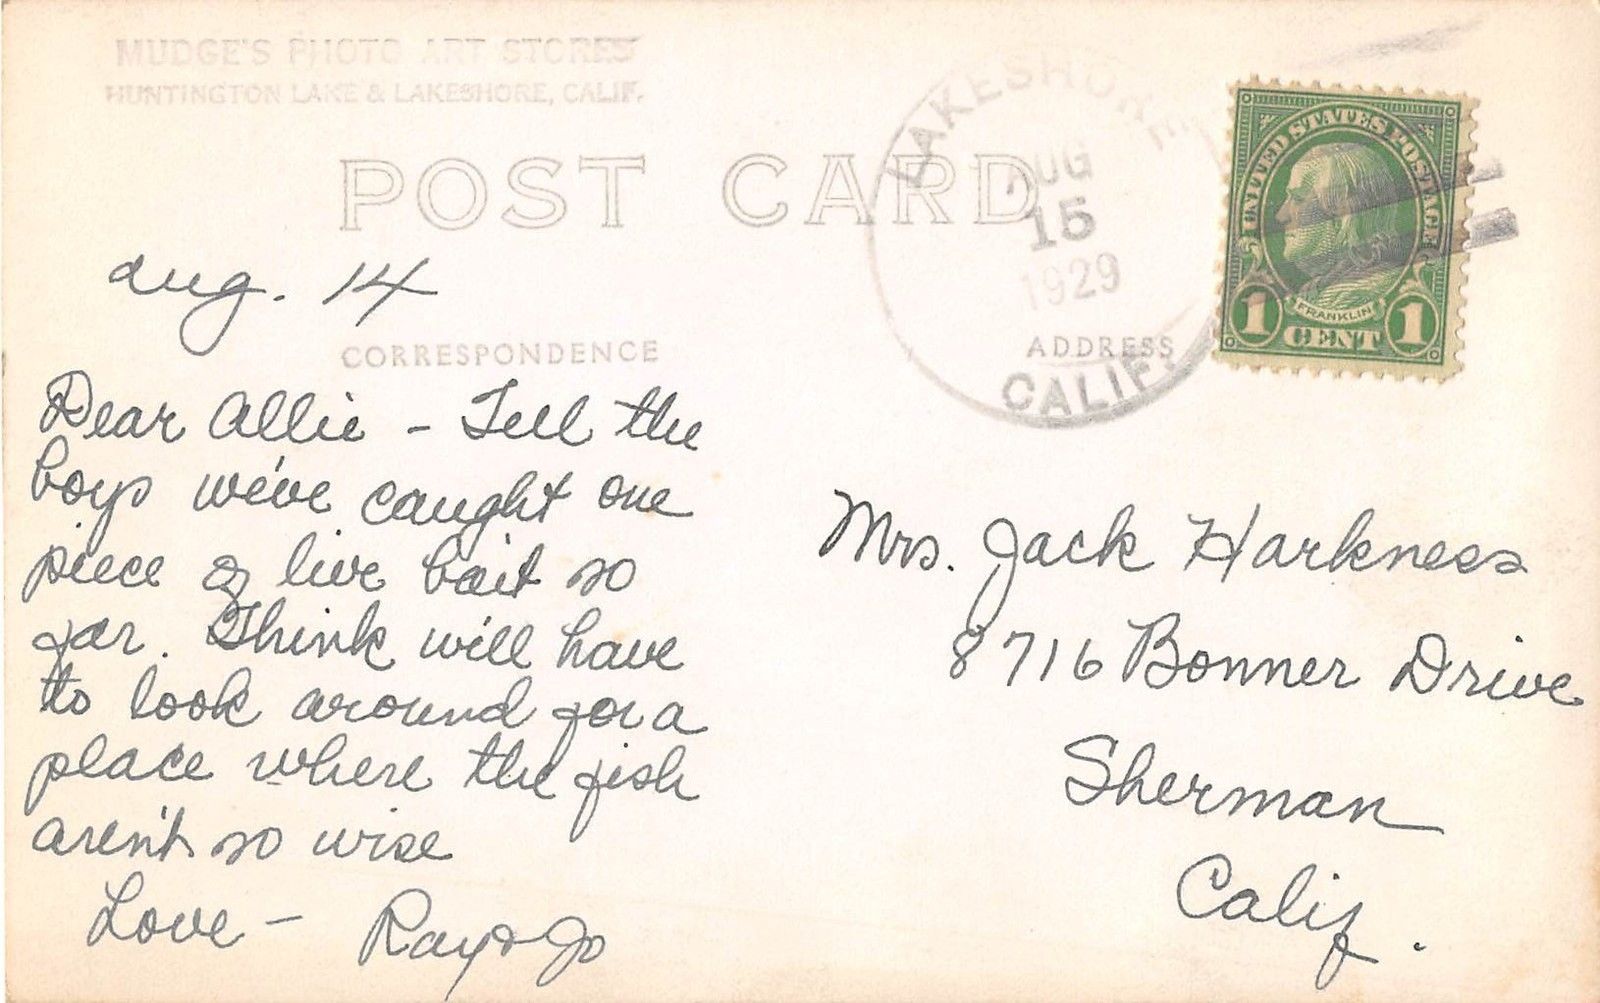 MUDGE'S PHOTO ART STORES
HUNTINGTON LAKE & LAKESHORE, CALIF.
POST CARD
LAKESHORE
AUG
15
1929
CALIF.
UNITED STATES POSTAGE
FRANKLIN
1 CENT 1
Aug. 14
CORRESPONDENCE
ADDRESS
Dear Allie - Tell the
boys we've caught one
piece of live bait so
far. Think will have
to look around for a
place where the fish
aren't so wise
Love - Ray & Jo
Mrs. Jack Harkness
8716 Bonner Drive
Sherman
Calif.